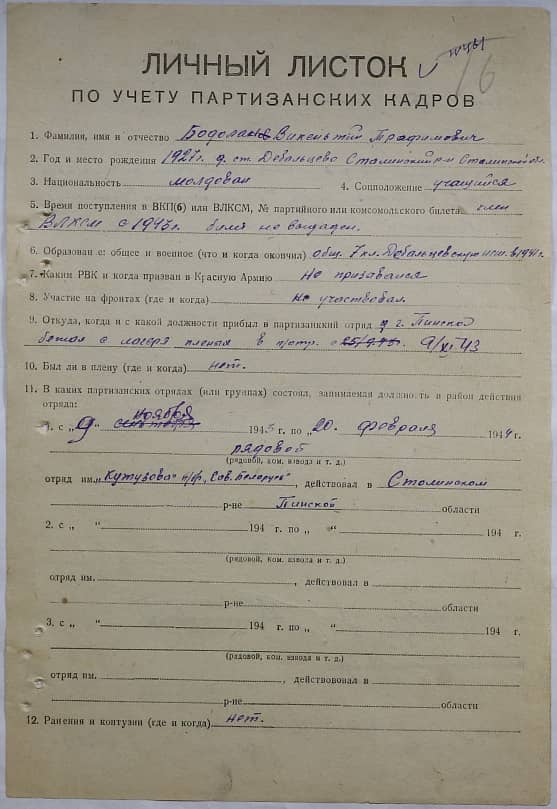 ЛИЧНЫЙ ЛИСТОК
16
ПО УЧЕТУ ПАРТИЗАНСКИХ КАДРОВ
1. Фамилия, имя и отчество Бодолан Викентий Трафимович
2. Год и место рождения 1927г. д. ст. Дебальцево Сталинский р-н Сталинской обл.
3. Национальность молдован 4. Соцположение учащийся
5. Время поступления в ВКП(б) или ВЛКСМ, № партийного или комсомольского билета член
ВЛКСМ с 1943г. билет не выдан.
6. Образован е: общее и военное (что и когда окончил) общ. 7 кл. Дебальцевскую в 1941г.
7. Каким РВК и когда призван в Красную Армию Не призывался
8. Участие на фронтах (где и когда) Не участвовал
9. Откуда, когда и с какой должности прибыл в партизанкий отряд г. Пинской
бежал с лагеря пленых в п/отр. с 9/XI 43
10. Был ли в плену (где и когда) нет.
11. В каких партизанских отрядах (или группах) состоял, занимаемая должность и район действия
отряда:
ноября
1. с „ 9 “ 1943 г. по „ 20. февраля 1944 г.
рядовой
(рядовой, ком. взвода и т. д.)
отряд им. „Кутузова" п/бр. „Сов. Белорусь" , действовал в Столинском
р-не Пинской области
2. с „ “ 194 г. по „ “ 194 г.
(рядовой, ком. взвода и т. д.)
отряд им. , действовал в
р-не области
3. с „ “ 194 г. по „ “ 194 г.
(рядовой, ком. взвода и т. д.)
отряд им. , действововал в
р-не области
12. Ранения и контузии (где и когда) нет.